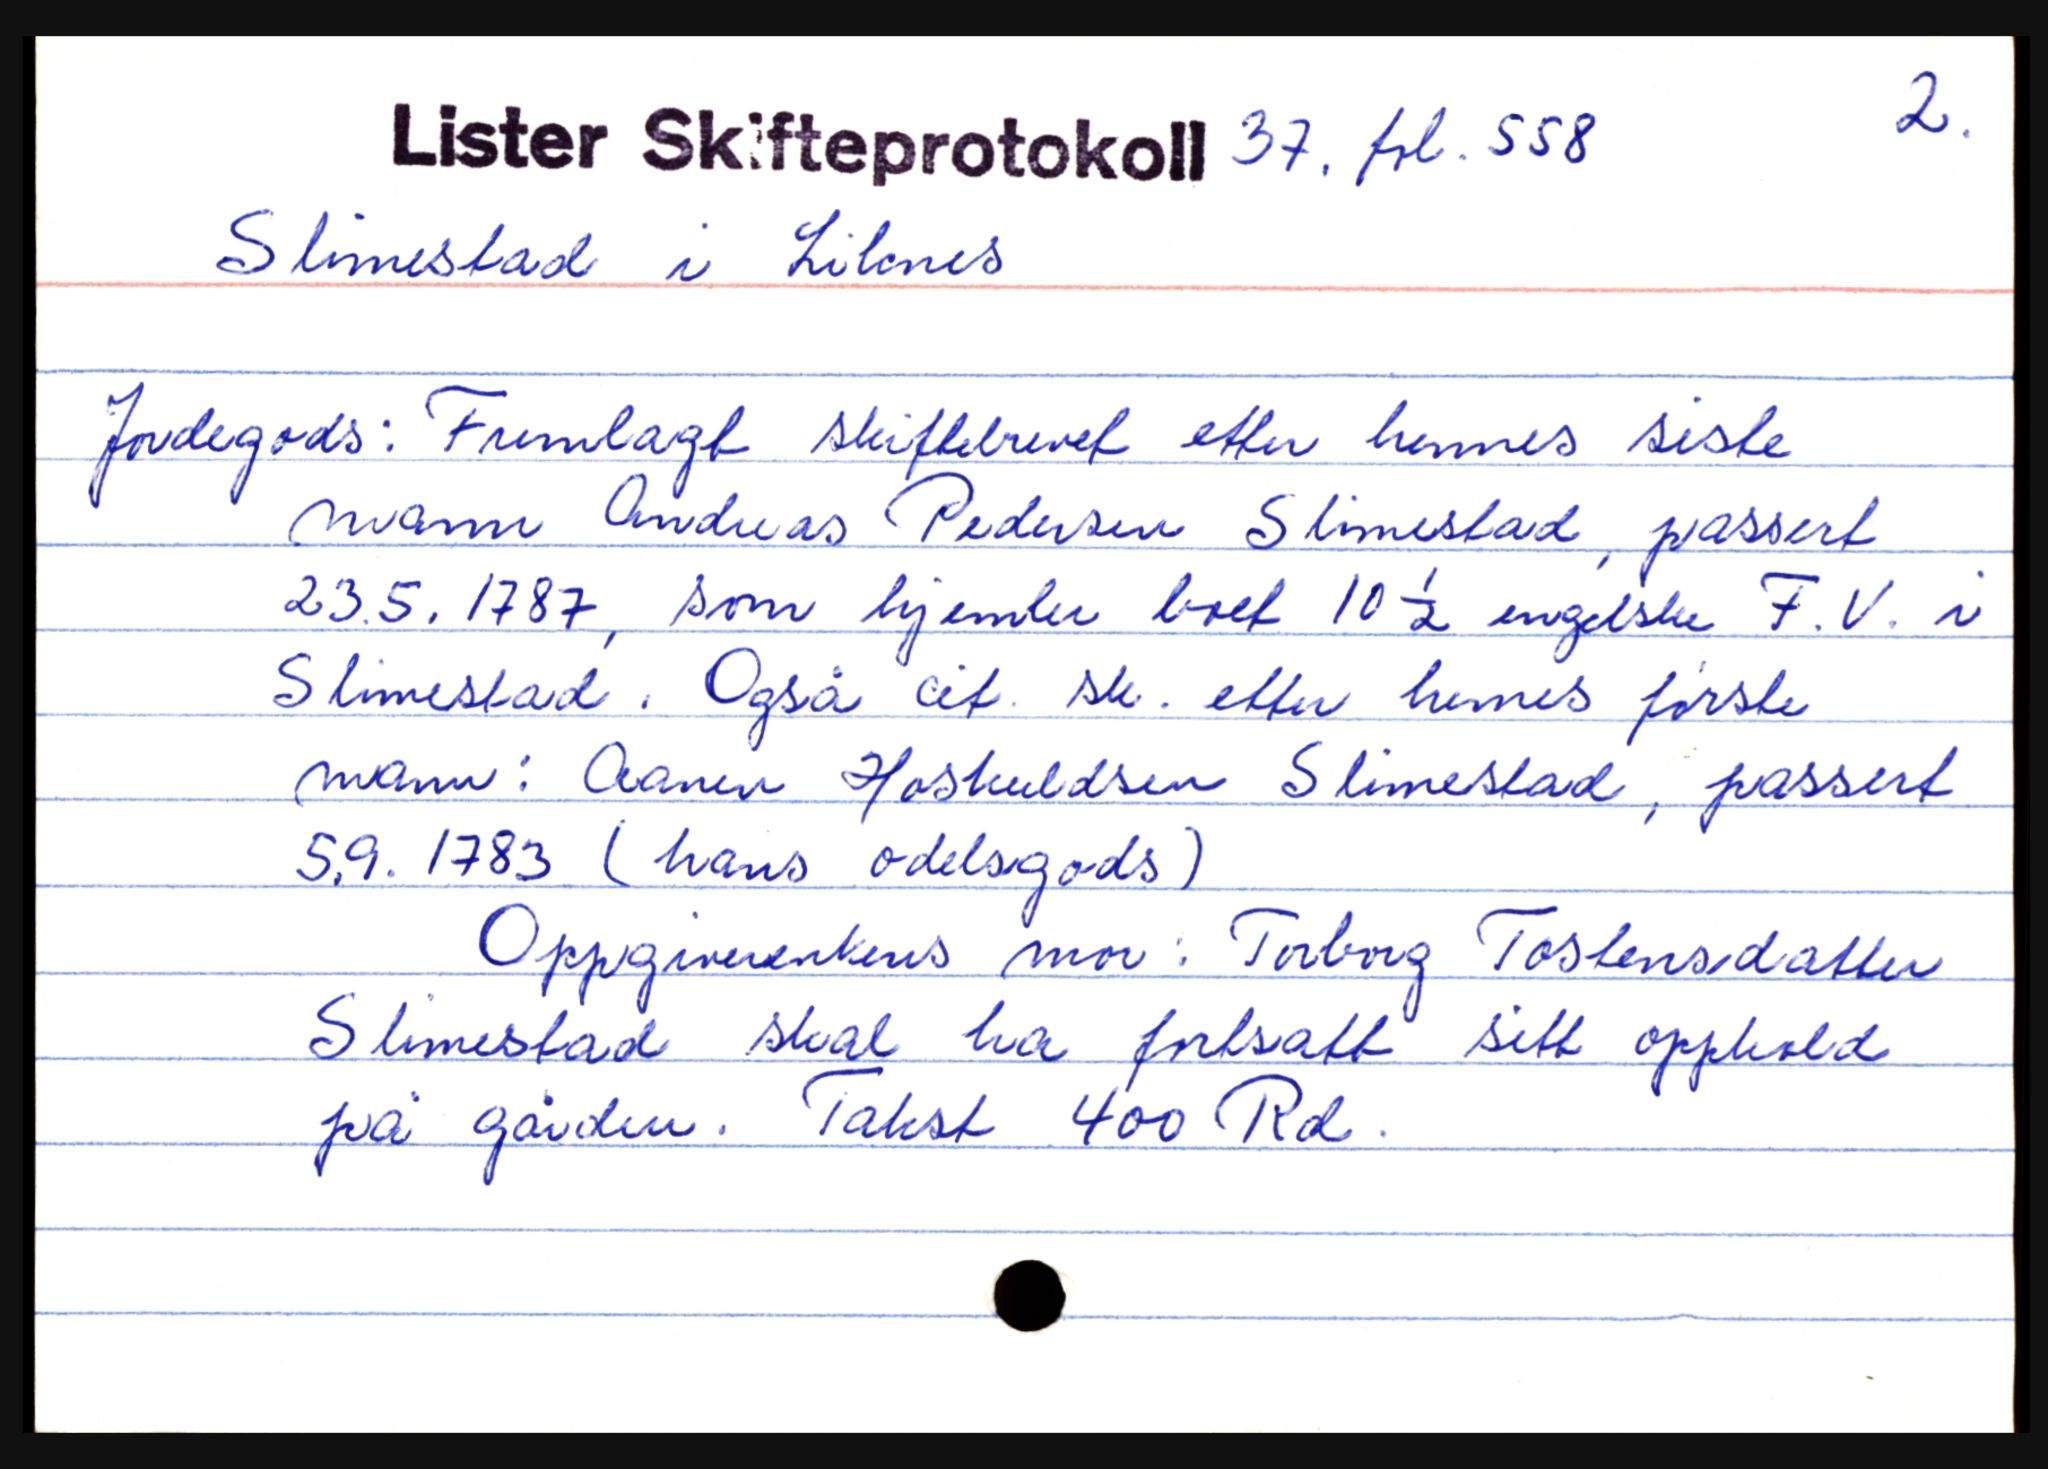 2.
Lister Skifteprotokoll 37. fol. 558
Slimestad i Liknes
Jordegods: Fremlagt skiftebrevet etter hennes siste
mann Andreas Pedersen Slimestad, passert
23.5.1787, som hjemler boet 10 ½ engelske F.V. i
Slimestad. Også cit. sk. etter hennes første
mann: Aanen Hoskuldsen Slimestad, passert
5.9. 1783 (hans odelsgods)
Oppgiverenkens mor: Torborg Tostensdatter
Slimestad skal ha fortsatt sitt opphold
på gården. Takst 400 Rd.